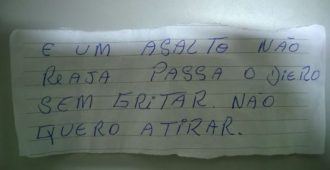 E UM ASALTO NÃO
REAJA PASSA O DIERO
SEM GRITAR. NAO
QUERO ATIRAR.